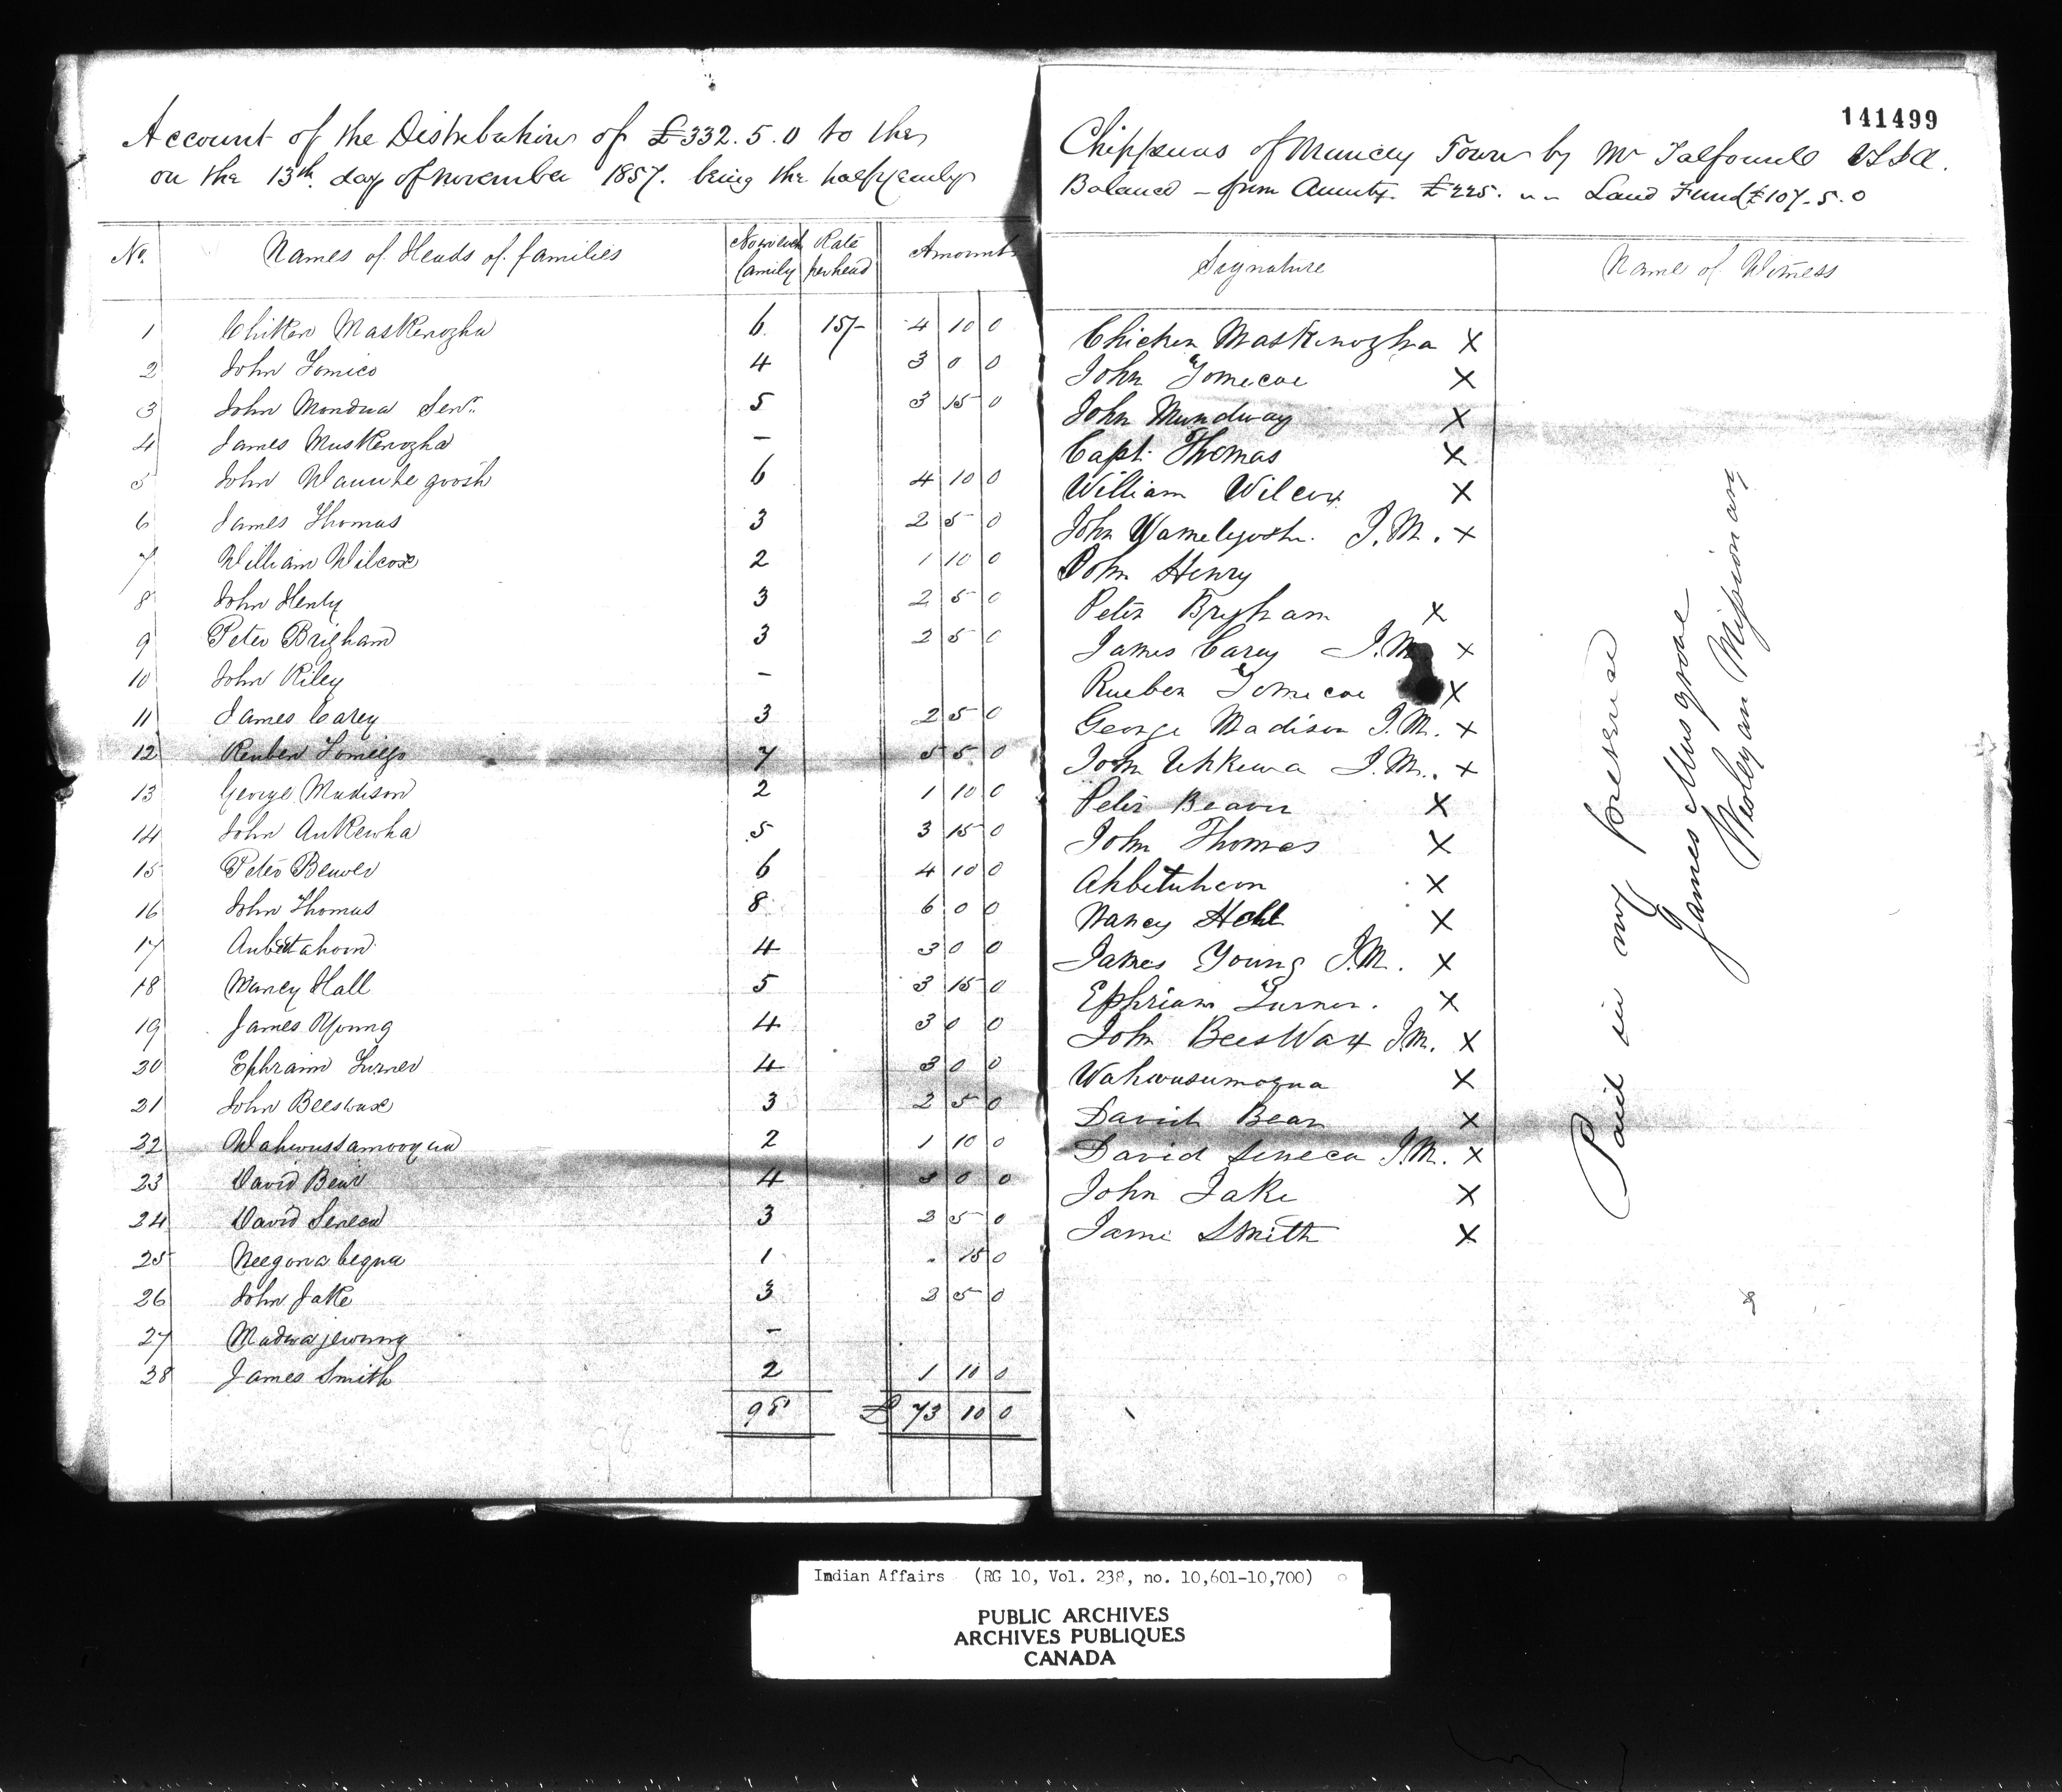 141499
Account of the Distribution of £332.5.0 to the Chippewas of Muncey Town by Mr Talfourd VSIA.
on the 13th day of November 1857. being the half yearly Balance - from Annuity £225. " " Land Fund £107.5.0
No. Names of Heads of families No in each family Rate per head Amount Signature Name of Witness
1 Chiken Maskenozha 6 15/- 4 10 0
2 John Tomico 4 3 0 0
3 John Mondua Senr. 5 3 15 0
4 James Muskenozha -
5 John Waumbe goosh 6 4 10 0
6 James Thomas 3 2 5 0
7 William Wilcox 2 1 10 0
8 John Henly 3 2 5 0
9 Peter Brigham 3 2 5 0
10 John Riley -
11 James Carey 3 2 5 0
12 Reuben Tomiego 7 5 5 0
13 George Madison 2 1 10 0
14 John Aukewha 5 3 15 0
15 Peter Beaver 6 4 10 0
16 John Thomas 8 6 0 0
17 Aubettahoon 4 3 0 0
18 Nancy Hall 5 3 15 0
19 James Young 4 3 0 0
20 Ephraim Turner 4 3 0 0
21 John Beeswax 3 2 5 0
22 Wahwussamooqua 2 1 10 0
23 David Bear 4 3 0 0
24 David Seneca 3 2 5 0
25 Neegonabequa 1 . 15 0
26 John Jake 3 2 5 0
27 Madwajewung -
28 James Smith 2 1 10 0
98 £ 73 10 0
Chicken Maskenozha X
John Tomecoe X
John Mundway X
Capt. Thomas X
William Wilcox X
John Wamelegosh. J.M. X
John Henry
Peter Brigham X
James Carey J.M. X
Rueben Tomecoe X
George Madison J.M. X
John Uhkewa J.M. X
Peter Beaver X
John Thomas X
Ahbetuhcon X
Nancy Hall X
James Young J.M. X
Ephriam Turner. X
John BeesWax J.M. X
Wahwusumoqua X
David Bear X
David Seneca J.M. X
John Jake X
Jame Smith X
Paid in my presence
James Musgrove
Wesleyan Missionary
Indian Affairs (RG 10, Vol. 238, no. 10,601-10,700)
PUBLIC ARCHIVES
ARCHIVES PUBLIQUES
CANADA